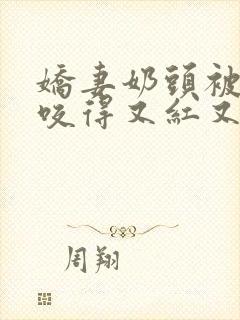 嬌妻奶頭被
咬得又紅又
周翔